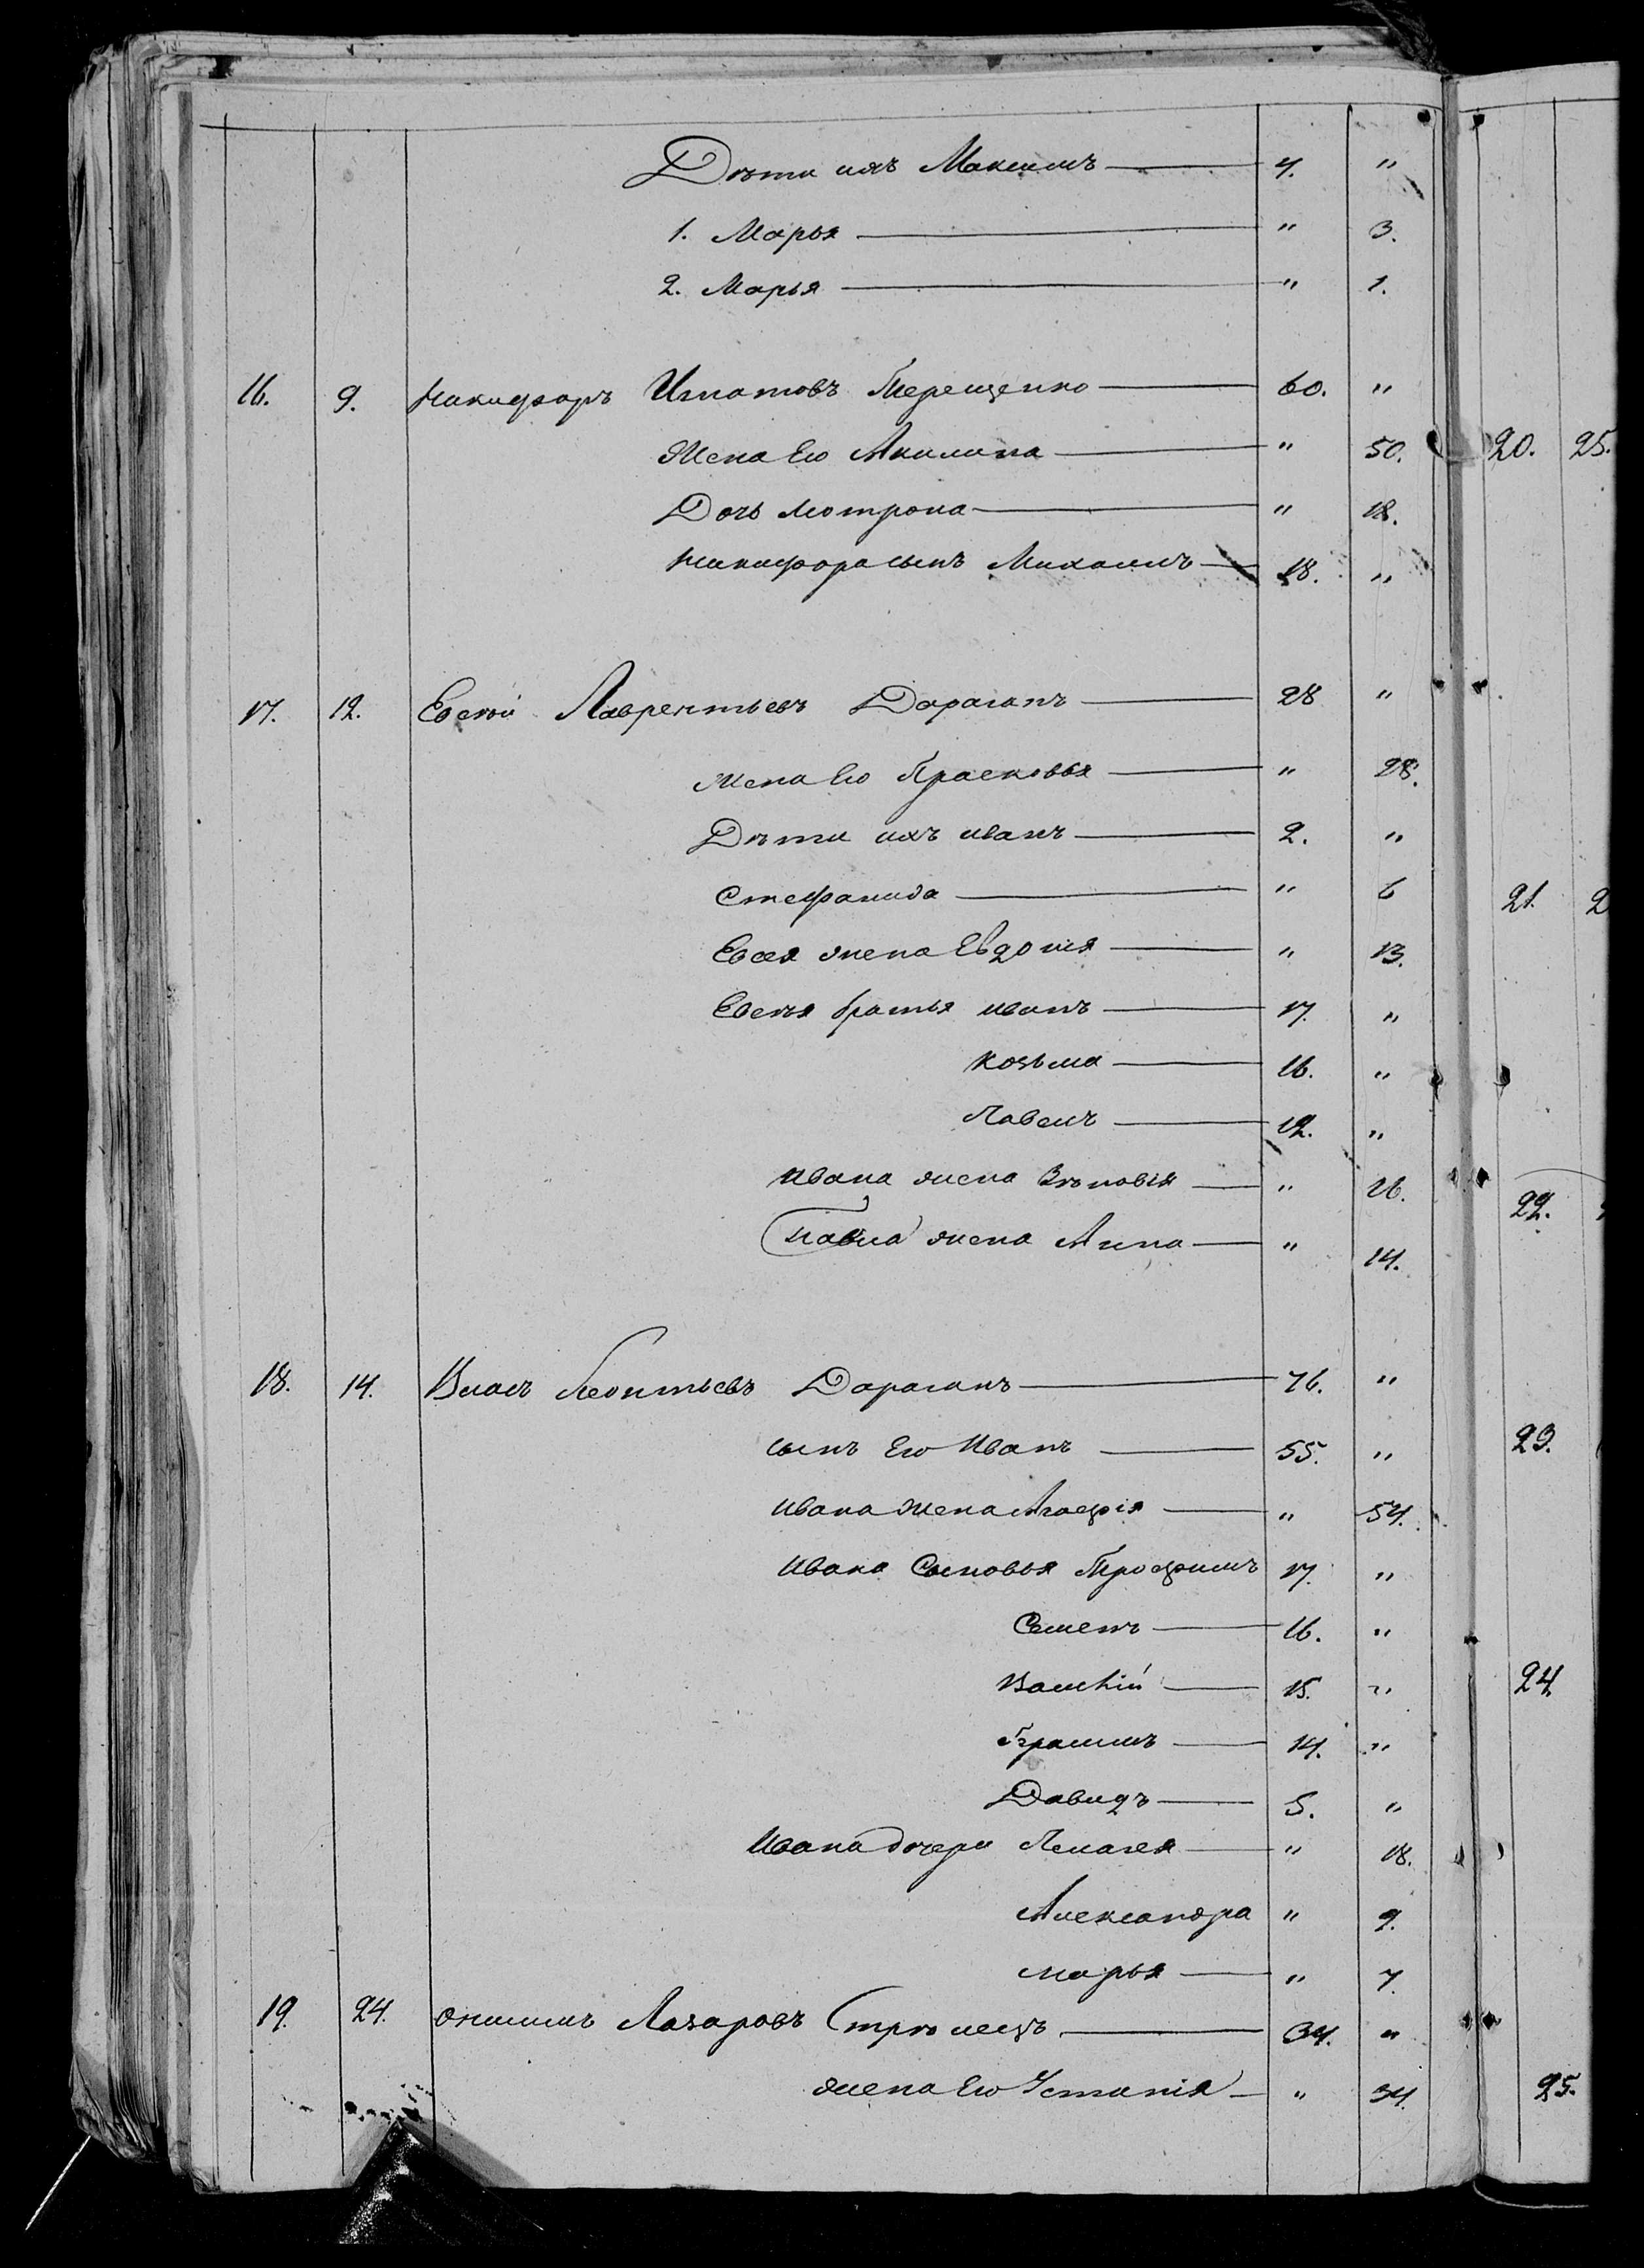 Дѣти ихъ Максимъ — 4. "
1. Марья — " 3.
2. Марья — " 1.
16. 9. Никифоръ Игнатовъ Терещенко — 60. "
Жена Его Акилина — " 50.
Дочь Мотрона — " 18.
Никифора сынъ Михаилъ — 18. "
17. 12. Евсѣй Лаврентьевъ Дараганъ — 28 "
Жена Его Прасковья — " 28.
Дѣти ихъ Иванъ — 2. "
Стефанида — " 6
Евсея жена Евдокія — " 13.
Евсѣя братья Иванъ — 17. "
Козьма — 16. "
Павелъ — 12. "
Ивана жена Зѣновія — " 26.
Павла жена Анна — " 14.
18. 14. Власъ Леонтьевъ Дараганъ — 76. "
сынъ Его Иванъ — 55. "
Ивана жена Агафія — " 54.
Ивана Сыновья Трофимъ 17. "
Семенъ — 16. "
15. "
14. "
Давидъ — 5. "
Ивана дочери Пелагея — " 18.
Александра " 9.
Марья — " 7.
19. 24. Онисимъ Лазаровъ Стрѣлецъ — 34. "
жена Его Устинія — " 34.
20. 25.
21. 2
22.
23.
24
25.